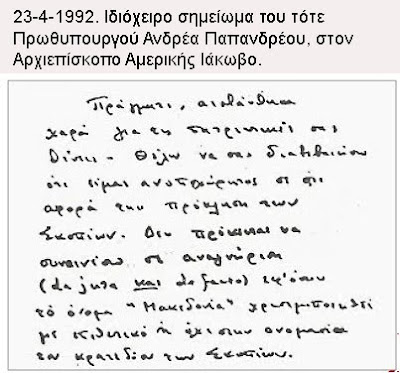 23-4-1992. Ιδιόχειρο σημείωμα του τότε
Πρωθυπουργού Ανδρέα Παπανδρέου, στον
Αρχιεπίσκοπο Αμερικής Ιάκωβο.
Πράγματι, αισθάνθηκα
χαρά για τις πατριωτικές σας
θέσεις - Θέλω να σας διαβεβαιώσω
ότι είμαι ανυποχώρητος σε ότι
αφορά την πρόκληση των
Σκοπίων. Δεν πρόκειται να
συναινέσω σε αναγνώριση
(de jure και de facto) εφ'όσον
το όνομα "Μακεδονία" χρησιμοποιηθεί
με επιθετικό ή όχι στην ονομασία
του κρατιδίου των Σκοπίων.